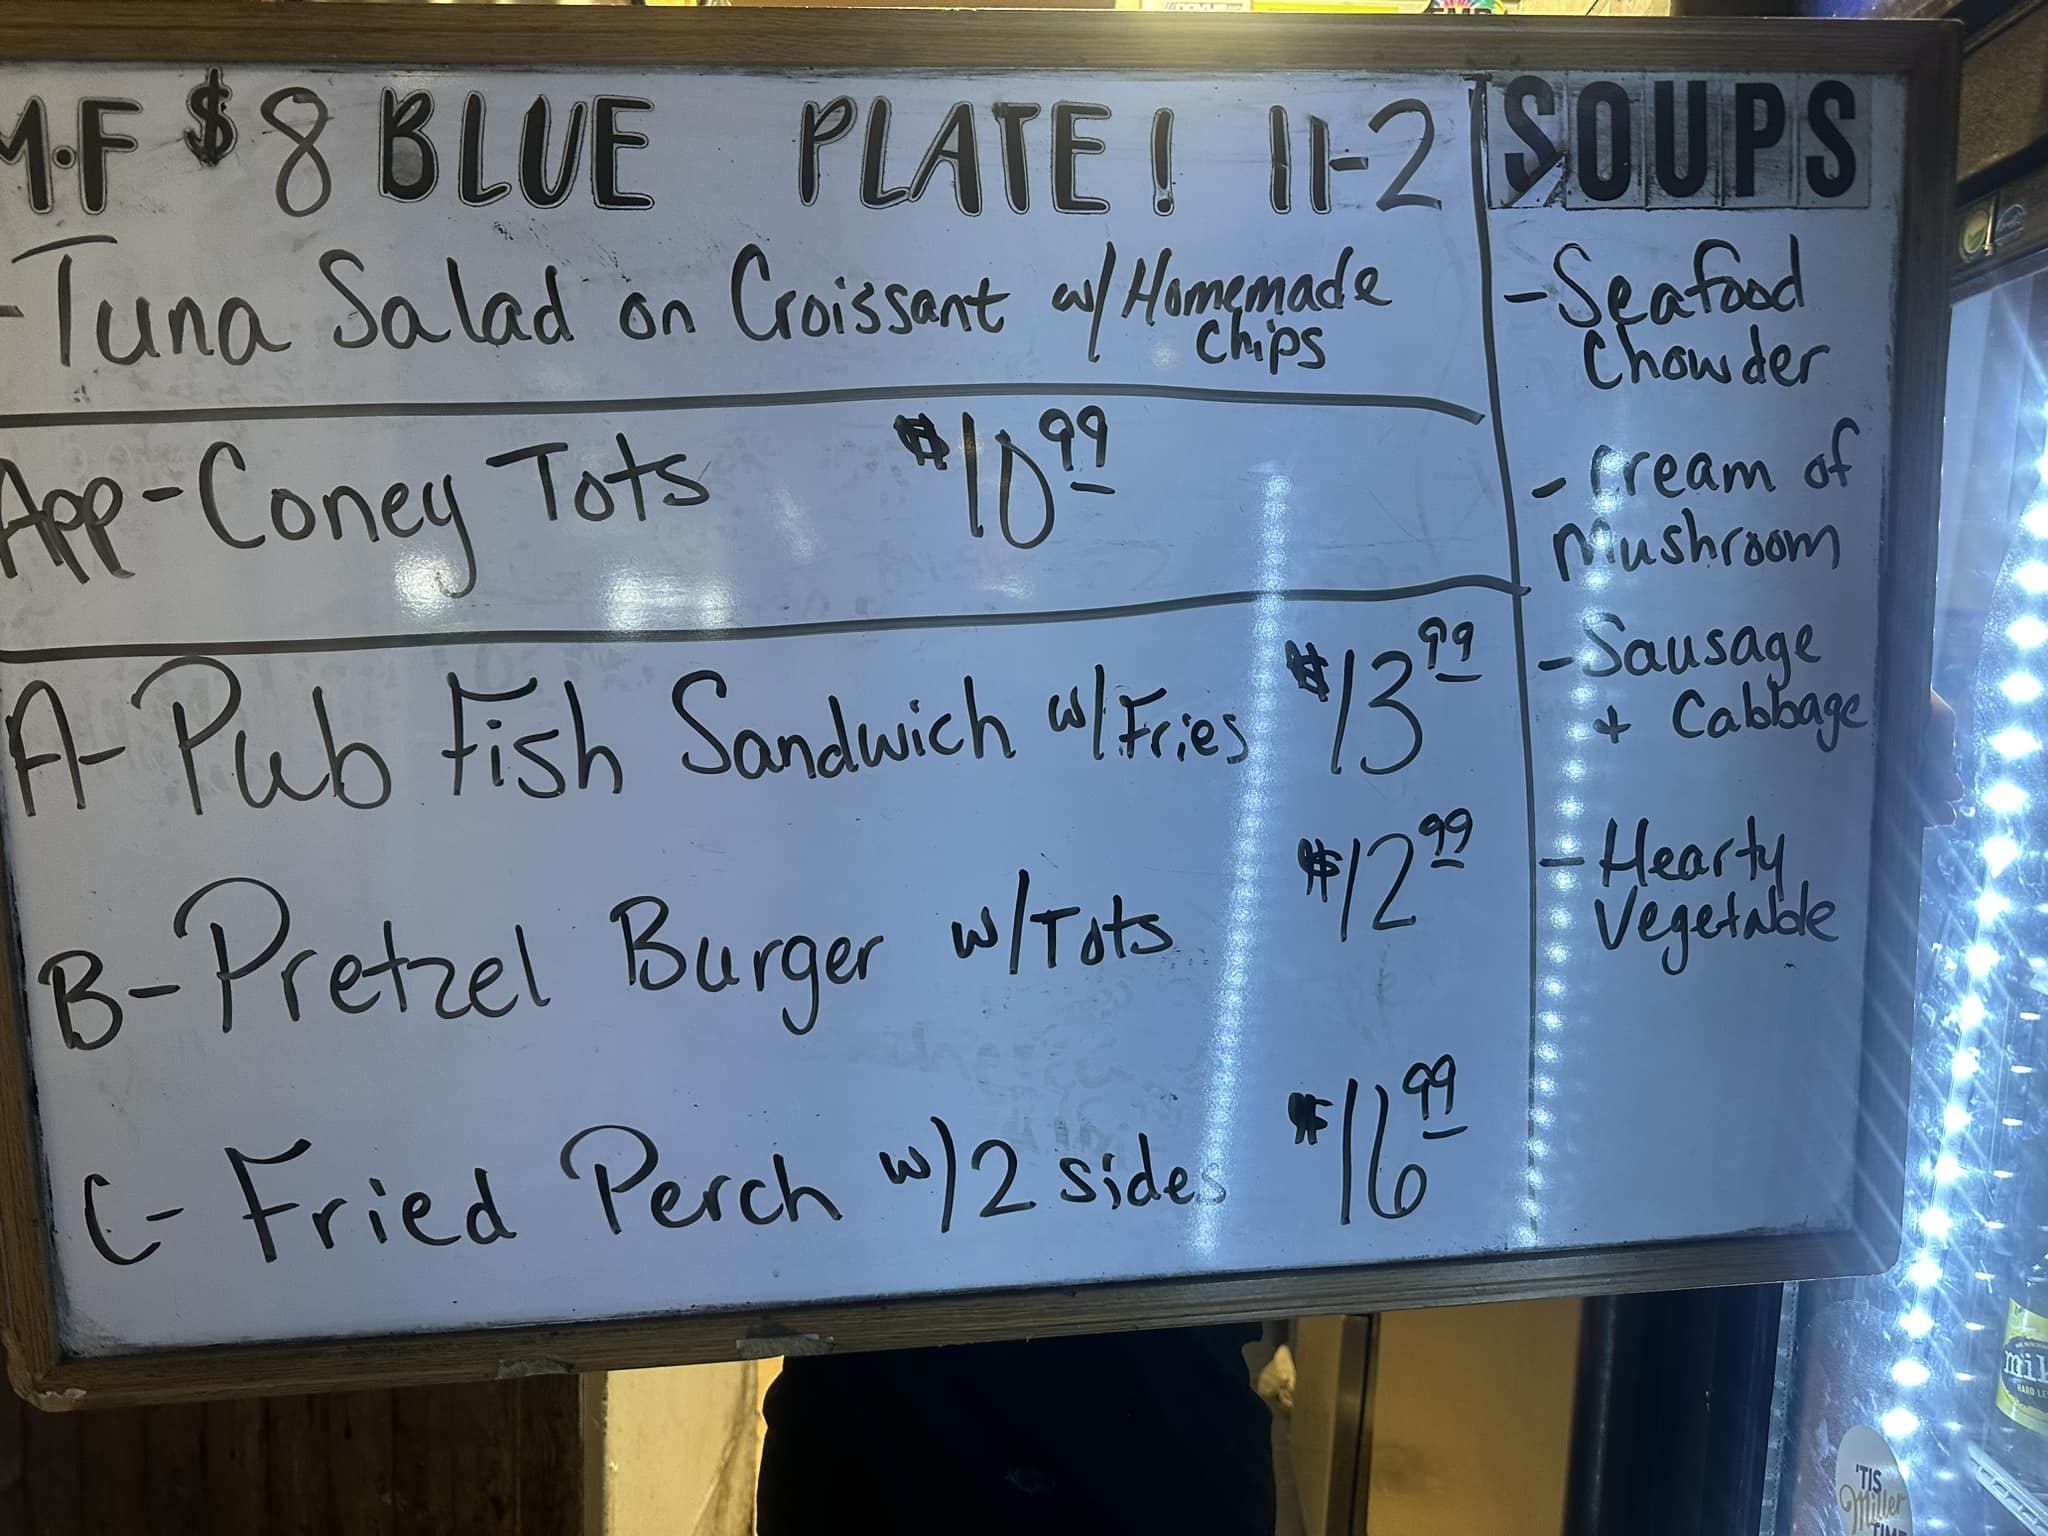 M-F $8 BLUE PLATE! 11-2
-Tuna Salad on Croissant w/ Homemade
Chips
App-Coney Tots $10.99
A-Pub Fish Sandwich w/Fries $13.99
B-Pretzel Burger w/Tots $12.99
C-Fried Perch w/2 sides $16.99
SOUPS
-Seafood
Chowder
-Cream of
Mushroom
-Sausage
+ Cabbage
-Hearty
Vegetable
'TIS
Miller
TIME